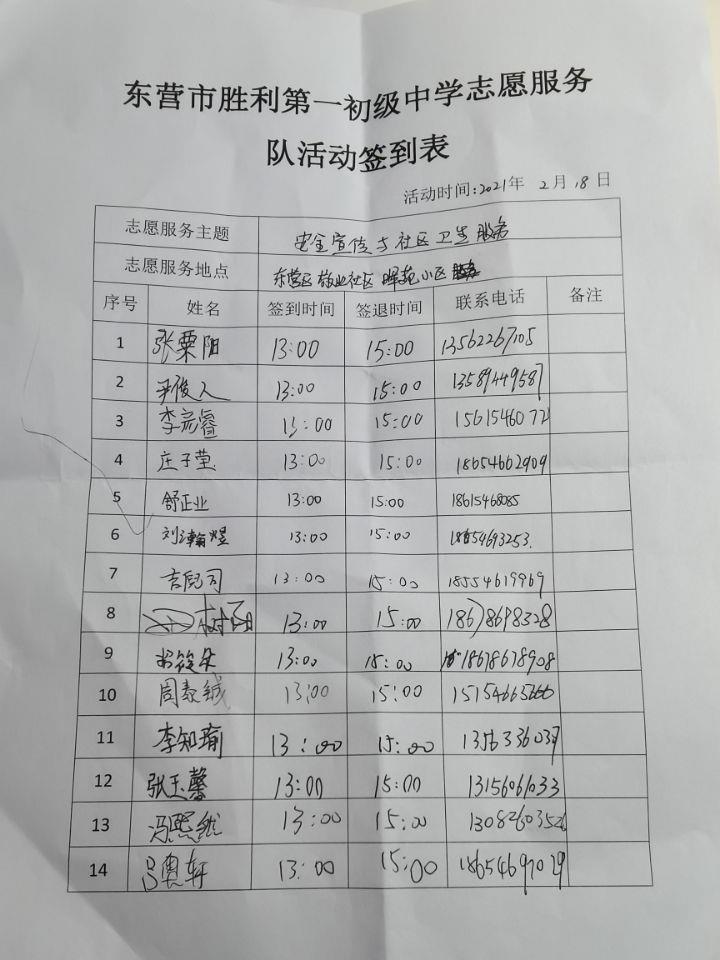 东营市胜利第一初级中学志愿服务
队活动签到表
活动时间:2021年 2月 18日
志愿服务主题 安全宣传与社区卫生服务
志愿服务地点 东营区敬业社区 晖苑小区
序号 姓名 签到时间 签退时间 联系电话 备注
1 张粟阳 13:00 15:00 13562267105
2 尹俊人 13:00 15:00 13589449587
3 李彦睿 13:00 15:00 15615460772
4 庄子莹 13:00 15:00 18654662909
5 舒正业 13:00 15:00 18615468085
6 刘瀚煜 13:00 15:00 18654693253.
7 13:00 15:00 18554619969
8 13:00 15:00 18678698328
9 13:00 15:00 18678678908
10 周泰铖 13:00 15:00
11 李知瑜 13:00 15:00 13563360377
12 张玉馨 13:00 15:00 13156061033
13 冯熙然 13:00 15:00 13082603526
14 吕奥轩 13:00 15:00 18654697029